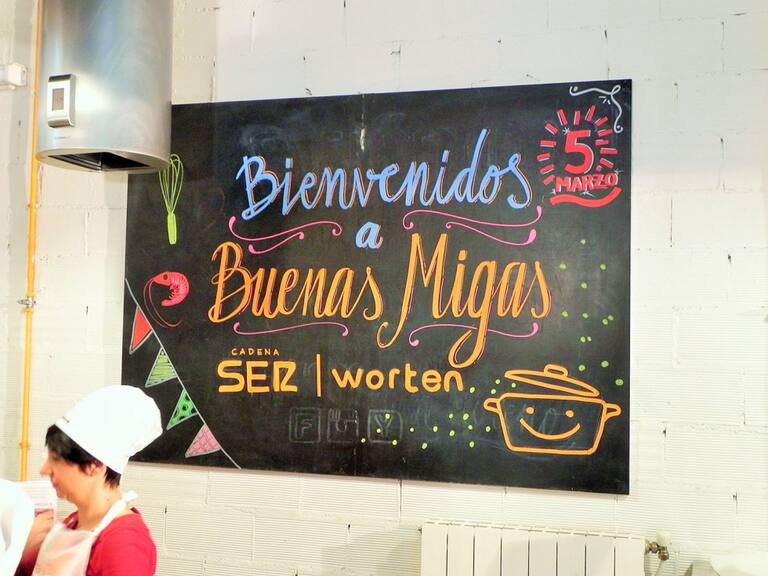 5
MARZO
Bienvenidos
a
Buenas Migas
CADENA
SER | worten
F Y